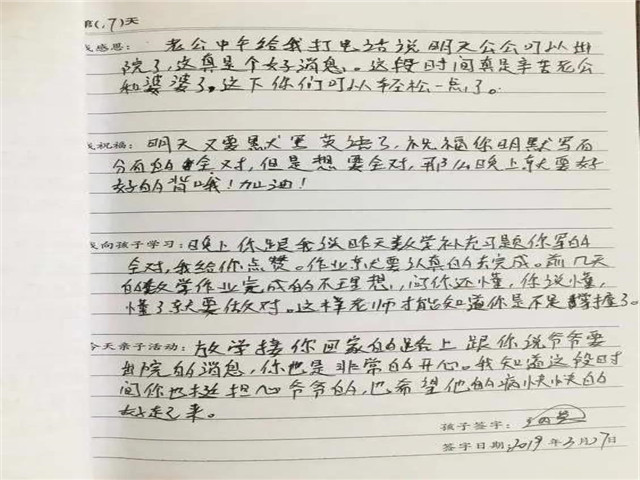 (17)天
感恩：老公中午给我打电话说明天公公可以出
院了，这真是个好消息。这段时间真是辛苦老公
和婆婆了。这下你们可以轻松一点了。
祝福：明天又要默写英语了，祝福你明默写百
分百的全对，但是想要全对，那么晚上就要好
好的背哦！加油！
向孩子学习：晚上你跟我说昨天数学补充习题你写的
全对，我给你点赞。作业就要认真的去完成。前几天
的数学作业完成的不理想，问你还懂，你说懂，
懂了就要做对。这样老师才能知道你是不是掌握了。
今天亲子活动：放学接你回家的路上跟你说爷爷要
出院的消息，你也是非常的开心。我知道这段时
间你也挺担心爷爷的，也希望他的病快快的
好起来。
孩子签字：
签字日期：2019年3月27日